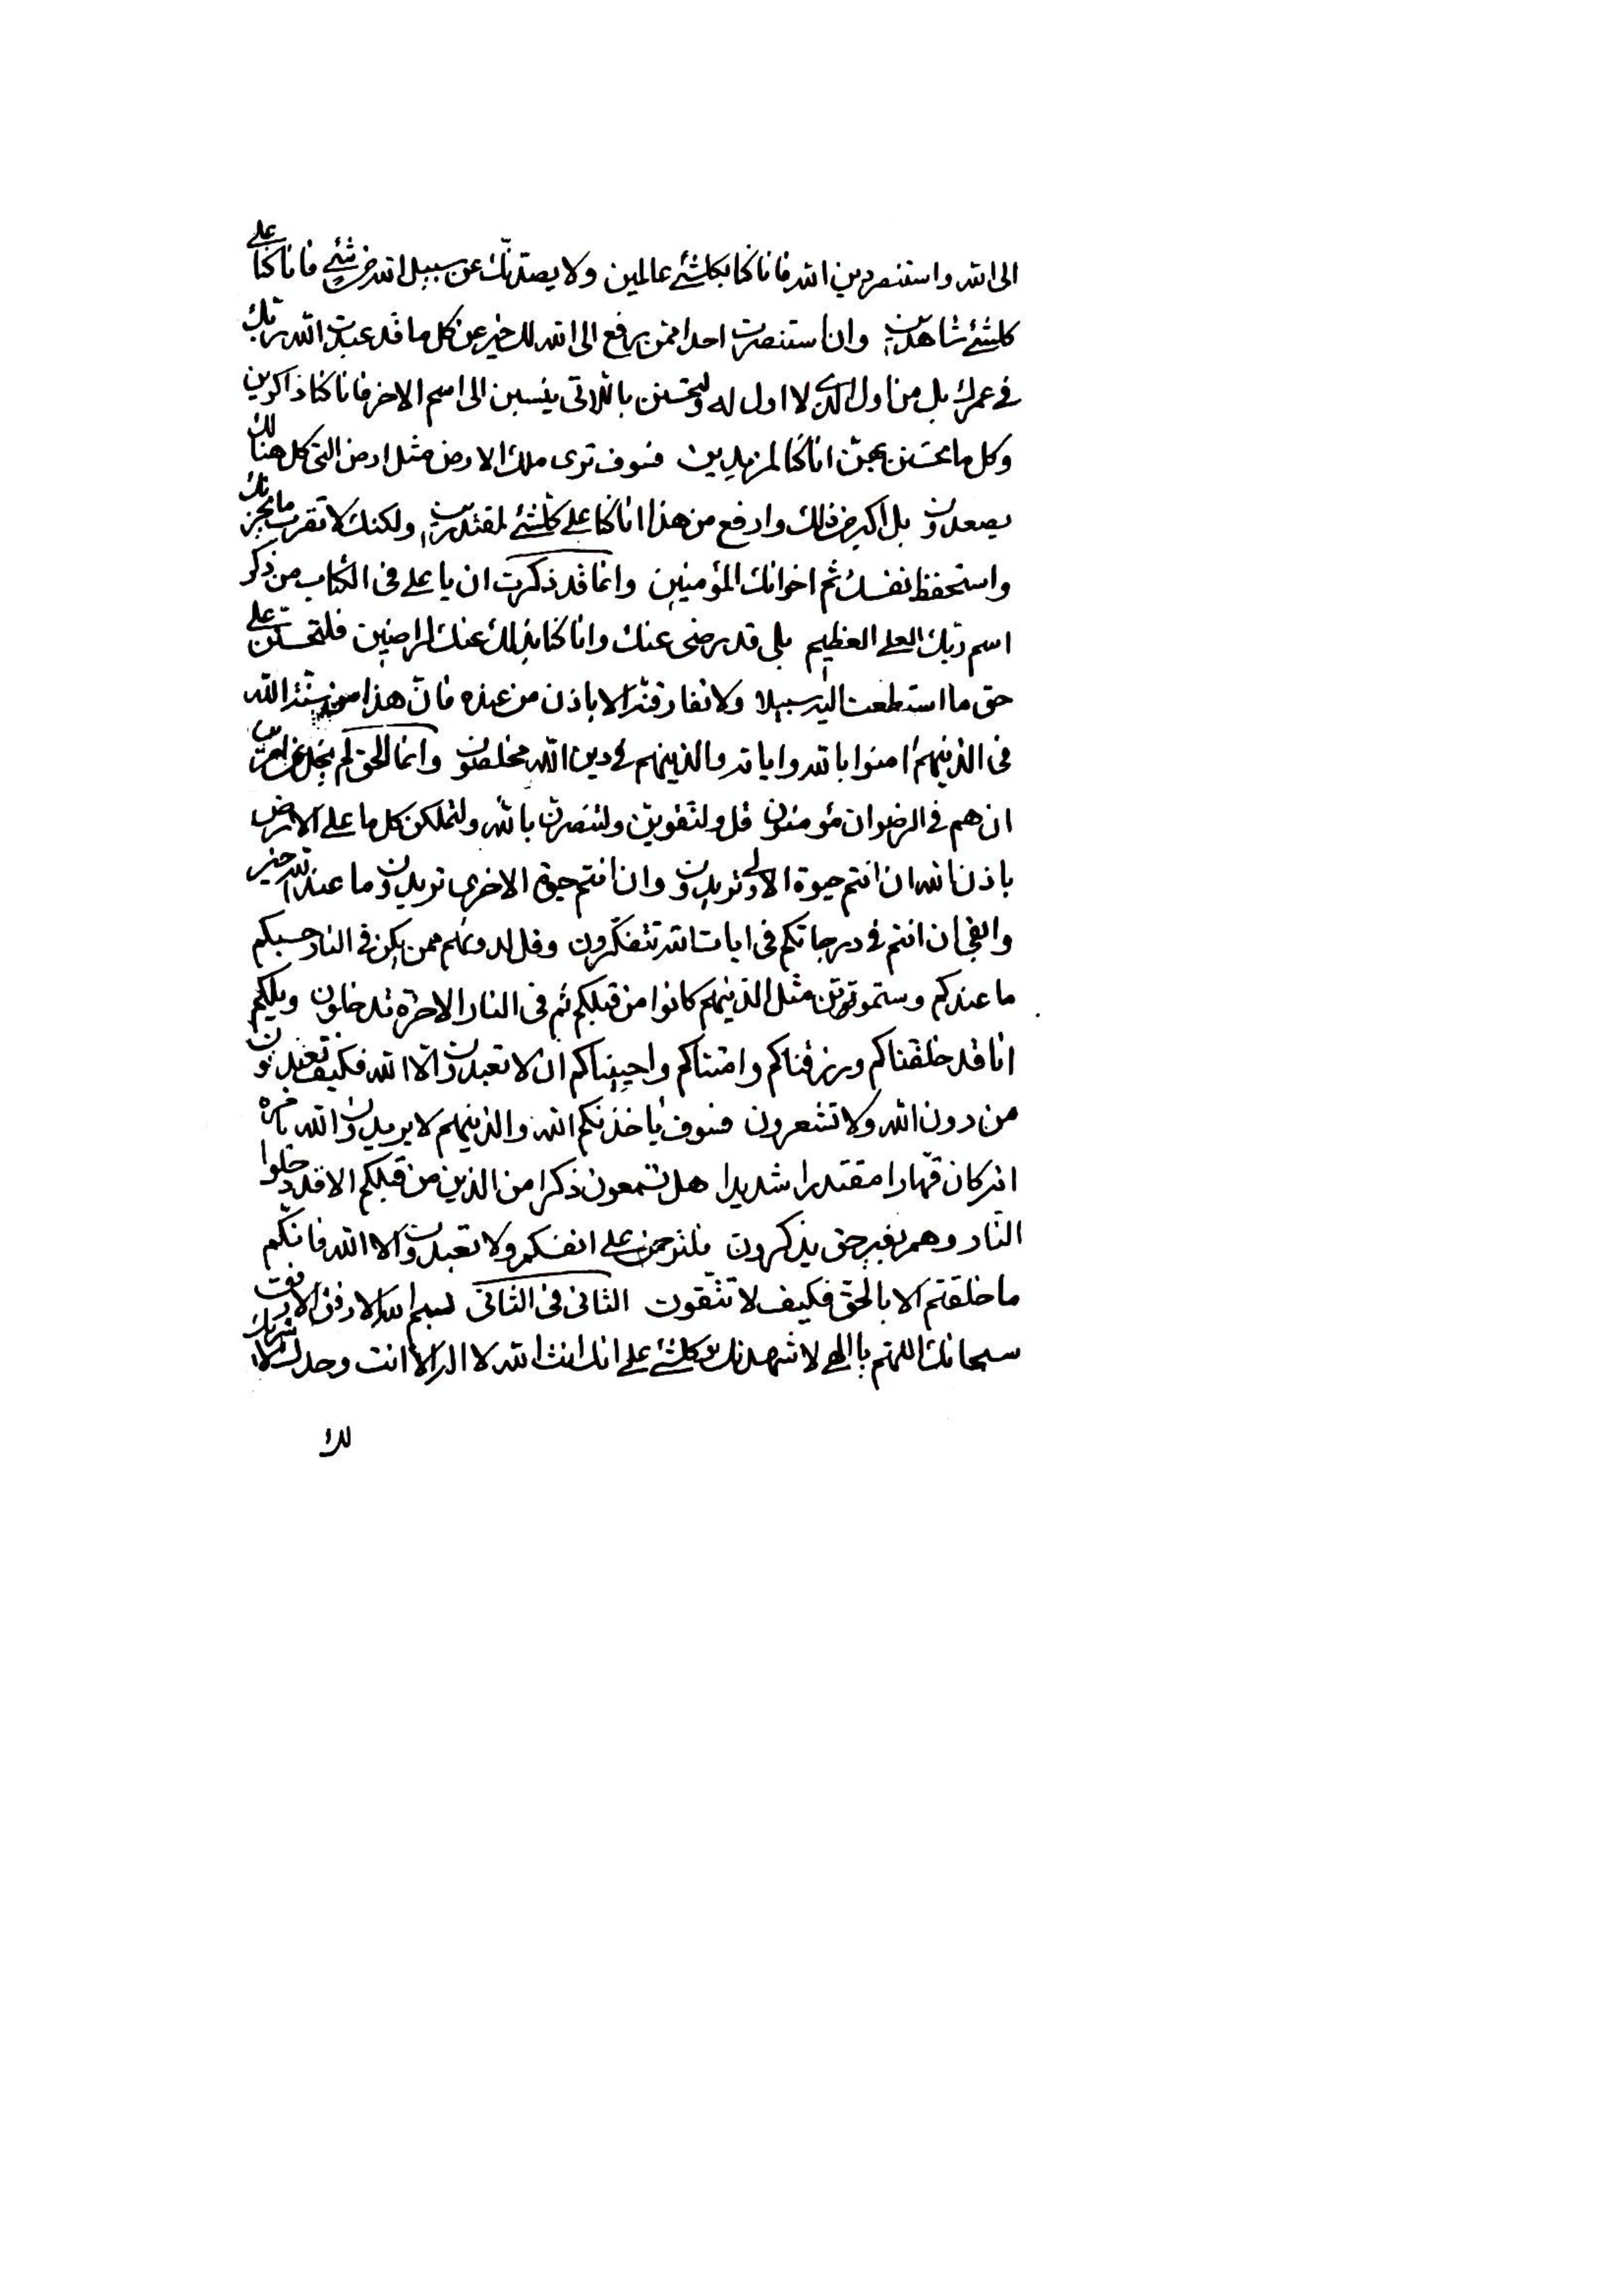 الى الله واستنصر دين الله فانا كنا بكلشئ عالمين ولا يصدنّك عن سبيل الله من شئ فانا كنا على
كلشئ شاهدين وان استنصرت احدا ممن يرفع الى الله لك خير عن كل ما قد عبدت الله ربك
في عمرك بل من اول الذي لا اول له ولتحسنن باللاتى ينسبن الى اسم الاخر فانا كنا ذاكرين
وكل ما تحسنن بهنّ انا كنا لمزيدين فسوف ترى ملك الارض مثل ارض التى كل هنالك
يصعدون بل اكبر من ذلك وارفع من هذا انا كنا على كلشئ لمقتدرين ولكنك لا تقرب ما يحزنك
واستحفظ نفسك ثم اخوانك المؤمنين وانما قد ذكرت ان يا على فى الكتاب من ذكر
اسم ربك العلى العظيم بلى قد رضى عنك وانا كنا بذلك عنك لراضين فلتحسننّ على
حق ما استطعت اليه سبيلا ولا تفارقنه الا باذن من عنده فانّ هذا من سنة الله
فى الذينهم امنوا بالله واياته والذينهم في دين الله مخلصون وانما الحق لم يجل عن
ان هم في الرضوان مؤمنون قل ولتقوينّ ولتنصرنّ بالله ولتملكن كل ما على الارض
باذن الله ان انتم حيوة الاولى تريدون وان انتم حيوة الاخرى تريدون وما عند الله خير
وابقى ان انتم في درجاتكم فى ايات الله تتفكرون وقل لدونهم ممن يكن في النار حسبكم
ما عندكم وستموتونّ مثل الذينهم كانوا من قبلكم ثم فى النار الاخرة تدخلون ويلكم
انا قد خلقناكم ورزقناكم وامتناكم واحييناكم ان لا تعبدون الا الله فكيف تعبدون
من دون الله ولا تشعرون فسوف يأخذنكم الله والذينهم لا يريدون الله
انه كان قهّارا مقتدرا شديدا هل تسمعون ذكرا من الذين من قبلكم الا قد دخلوا
النار وهم بغير حق يذكرون فلترحمن على انفسكم ولا تعبدون الا الله فانكم
ما خلقتم الا بالحق فكيف لا تتّقون الثانى فى الثانى بسم الله الارفن الارفن
سبحانك اللهم يا الهى لاشهدنك وكلشئ على انك انت الله لا اله الا انت وحدك لا شريك
لك